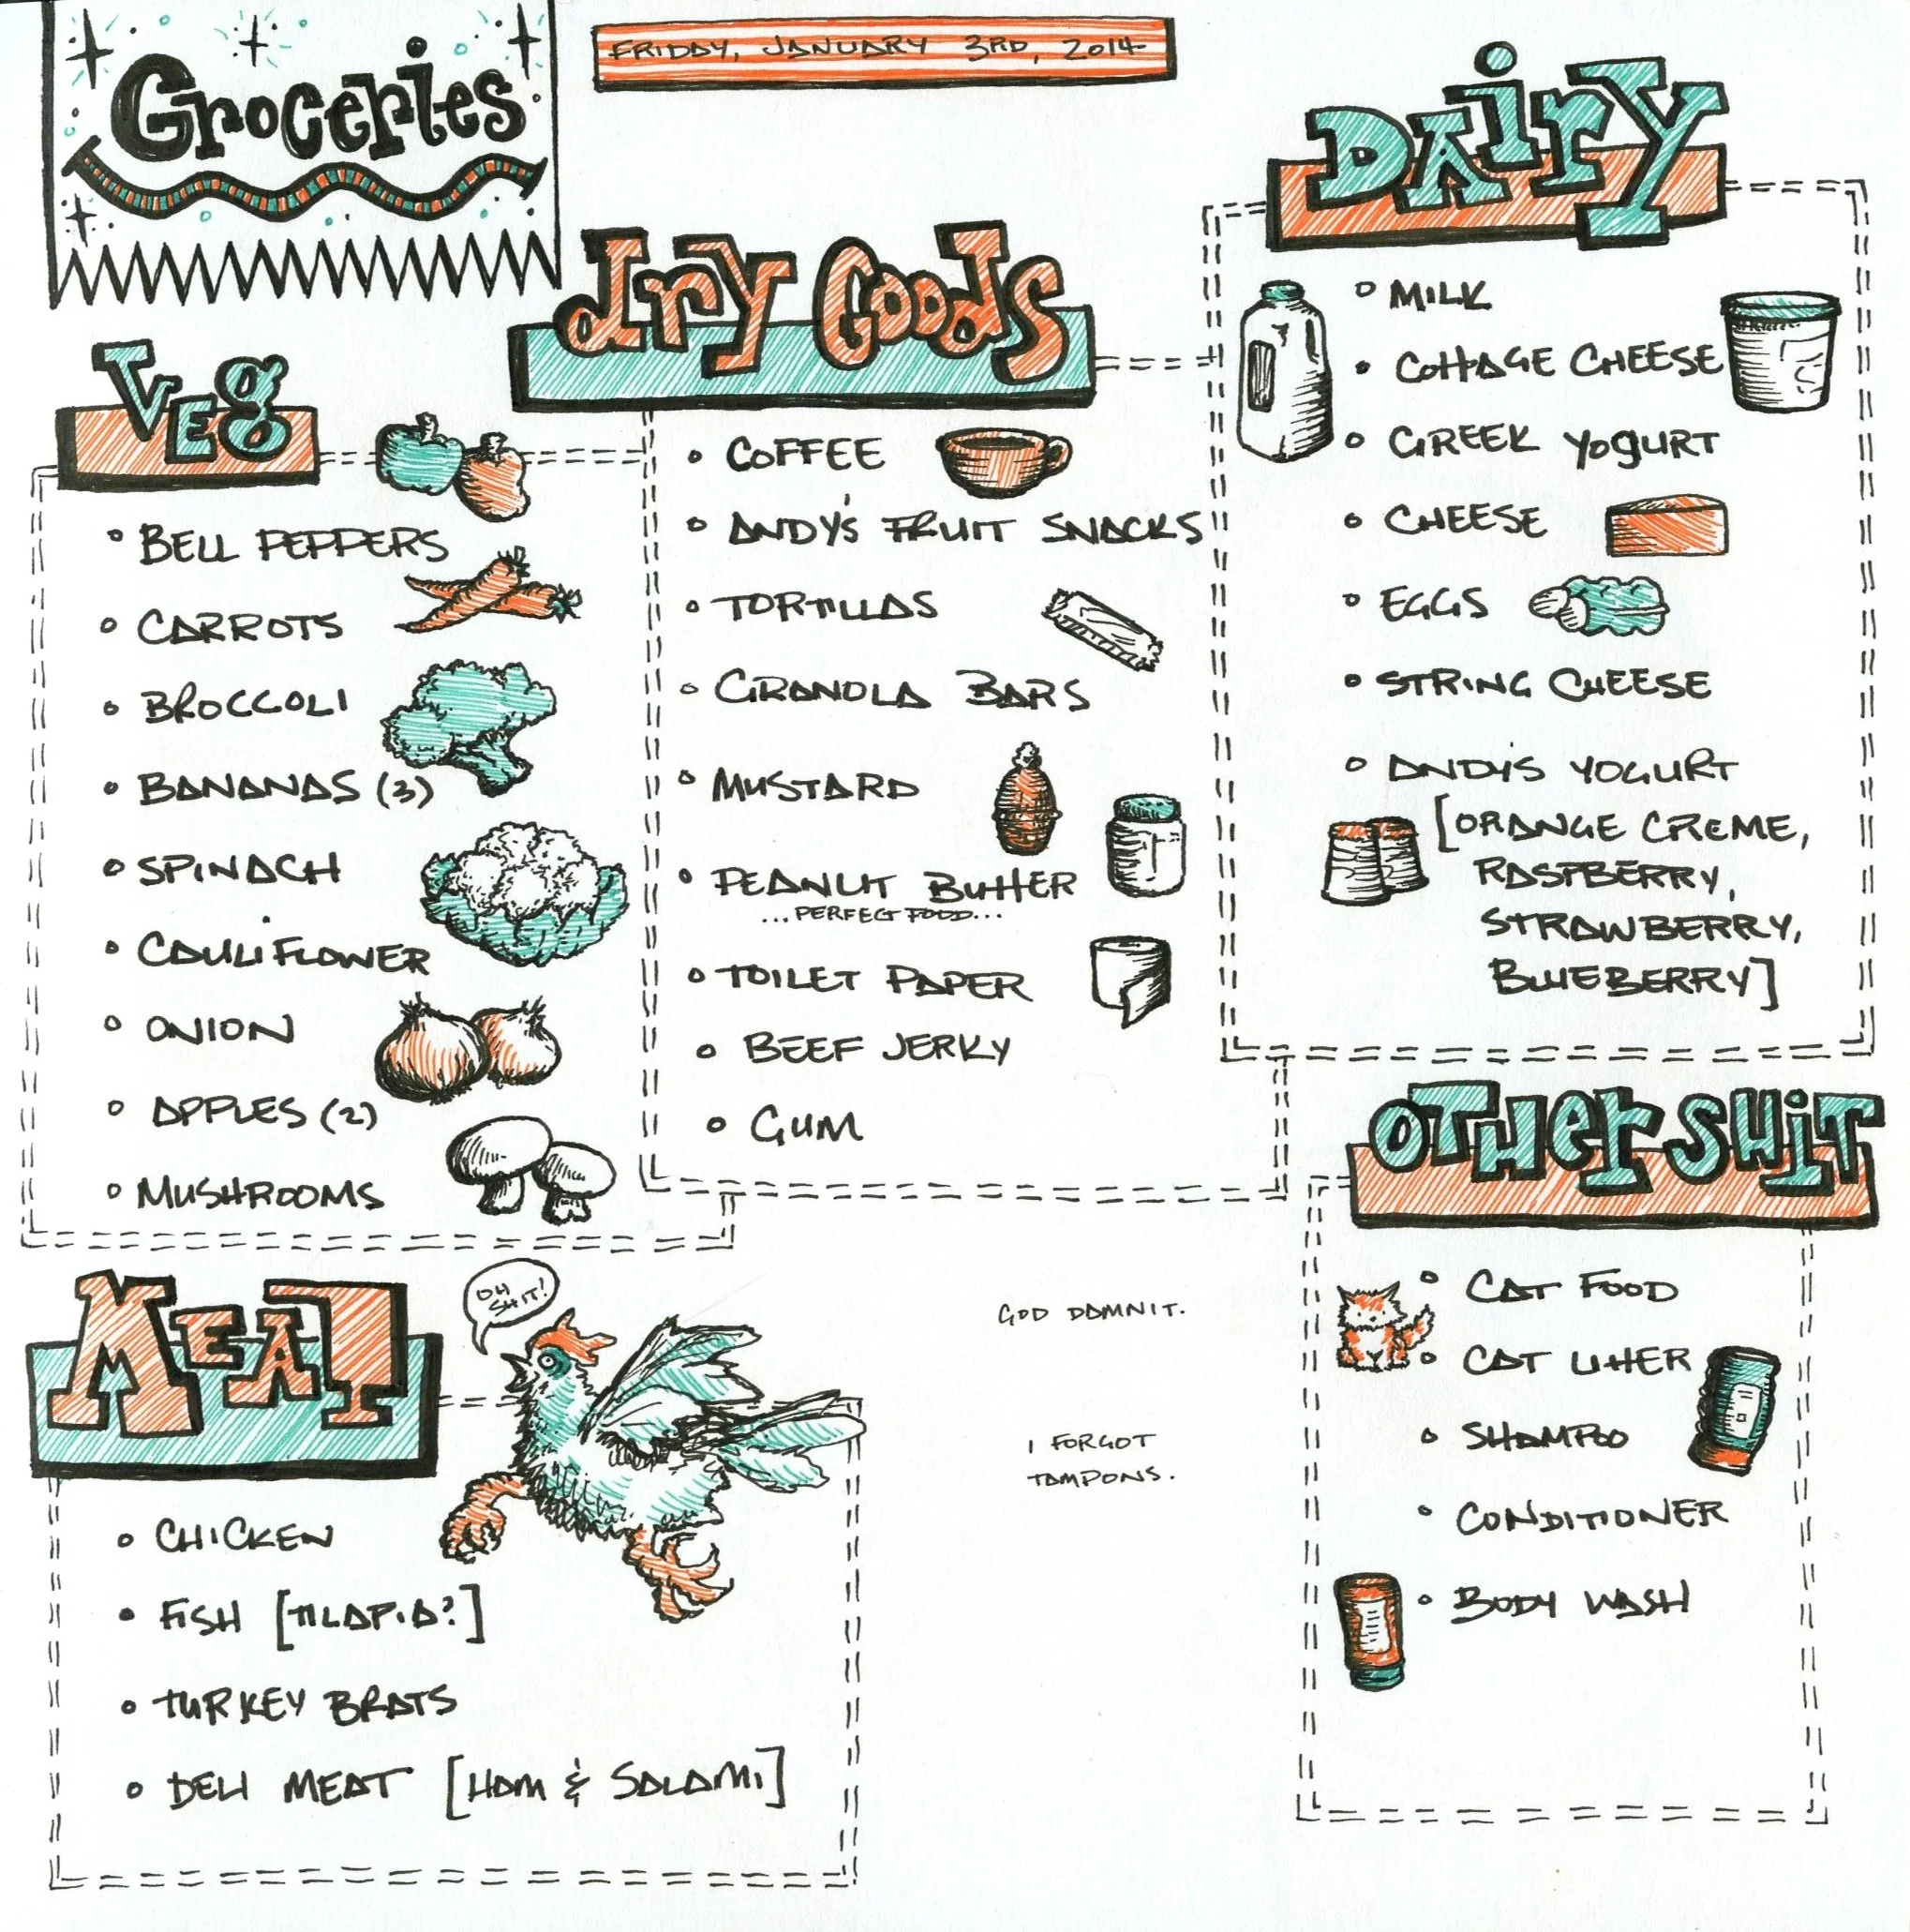 Groceries
FRIDAY, JANUARY 3RD, 2014
Veg
BELL PEPPERS
CARROTS
BROCCOLI
BANANAS (3)
SPINACH
CAULIFLOWER
ONION
APPLES (2)
MUSHROOMS
dry Goods
COFFEE
ANDY'S FRUIT SNACKS
TORTILLAS
GRANOLA BARS
MUSTARD
PEANUT BUTTER
...PERFECT FOOD...
TOILET PAPER
BEEF JERKY
GUM
DAiry
MILK
COTTAGE CHEESE
GREEK YOGURT
CHEESE
EGGS
STRING CHEESE
ANDY'S YOGURT
[ORANGE CREME,
RASPBERRY,
STRAWBERRY,
BLUEBERRY]
MEAT
OH
SHIT!
CHICKEN
FISH [TILAPIA?]
TURKEY BRATS
DELI MEAT [HAM & SALAMI]
GOD DAMNIT.
I FORGOT
TAMPONS.
OTHer SHiT
CAT FOOD
CAT LITTER
SHAMPOO
CONDITIONER
BODY WASH